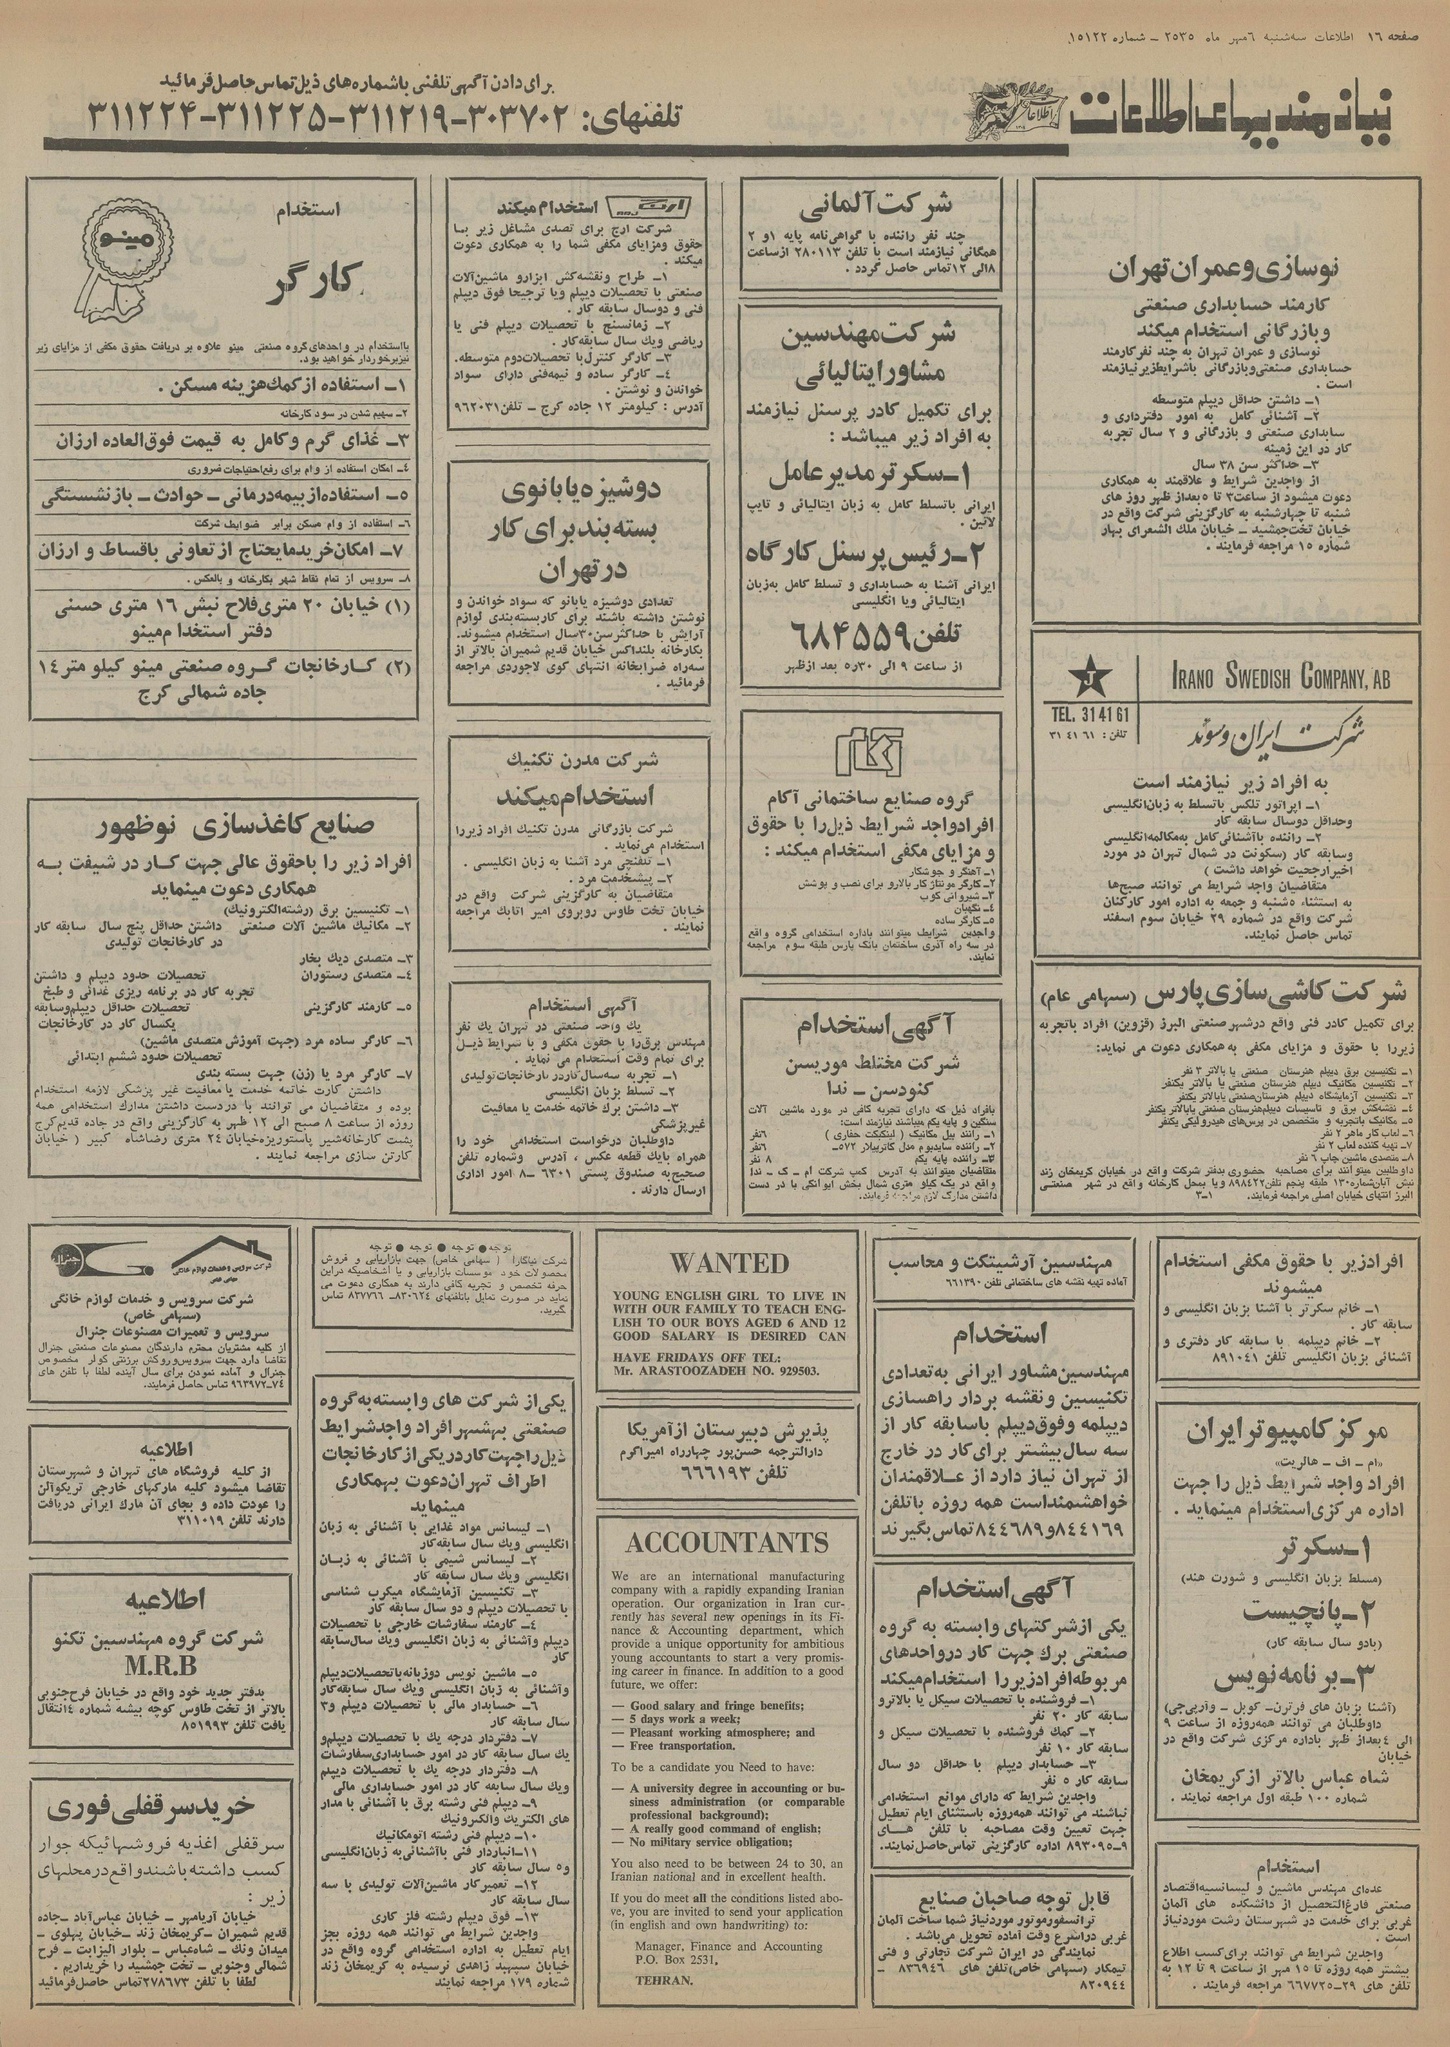 صفحه ۱۶ اطلاعات سه‌شنبه ۶ مهر ماه ۲۵۳۵ ـ شماره ۱۵۱۲۲
نیازمندیهای اطلاعات
برای دادن آگهی تلفنی با شماره‌های ذیل تماس حاصل فرمائید
تلفنهای: ۳۰۳۷۰۲-۳۱۱۲۱۹-۳۱۱۲۲۵-۳۱۱۲۲۴
نوسازی و عمران تهران
کارمند حسابداری صنعتی
و بازرگانی استخدام میکند
نوسازی و عمران تهران به چند نفر کارمند
حسابداری صنعتی و بازرگانی با شرایط زیر نیازمند
است .
۱ـ داشتن حداقل دیپلم متوسطه
۲ـ آشنائی کامل به امور دفترداری و
حسابداری صنعتی و بازرگانی و ۲ سال تجربه
کار در این زمینه
۳ـ حداکثر سن ۳۸ سال
از واجدین شرایط و علاقمند به همکاری
دعوت میشود از ساعت ۳ تا ۵ بعد از ظهر روز های
شنبه تا چهارشنبه به کارگزینی شرکت واقع در
خیابان تخت جمشید ـ خیابان ملك الشعرای بهار
شماره ۱۵ مراجعه فرمایند .
IRANO SWEDISH COMPANY, AB
J
TEL. 31 41 61
تلفن : ۳۱ ۴۱ ۶۱
شرکت ایران و سوئد
به افراد زیر نیازمند است
۱ـ اپراتور تلکس با تسلط به زبان انگلیسی
وحداقل دوسال سابقه کار
۲ـ راننده با آشنائی کامل به مکالمه انگلیسی
وسابقه کار (سکونت در شمال تهران در مورد
اخیر ارجحیت خواهد داشت )
متقاضیان واجد شرایط می توانند صبح‌ها
به استثناء ۵شنبه و جمعه به اداره امور کارکنان
شرکت واقع در شماره ۲۹ خیابان سوم اسفند
تماس حاصل نمایند.
شرکت کاشی سازی پارس (سهامی عام)
برای تکمیل کادر فنی واقع در شهر صنعتی البرز (قزوین) افراد با تجربه
زیر را با حقوق و مزایای مکفی به همکاری دعوت می نماید:
۱ـ تکنیسین برق دیپلم هنرستان صنعتی یا بالاتر ۳ نفر
۲ـ تکنیسین مکانیک دیپلم هنرستان صنعتی یا بالاتر یکنفر
۳ـ تکنیسین آزمایشگاه دیپلم هنرستان صنعتی یا بالاتر یکنفر
۴ـ نقشه‌کش برق و تاسیسات دیپلم هنرستان صنعتی یا بالاتر یکنفر
۵ـ مکانیک با تجربه و متخصص در پرس‌های هیدرولیکی یکنفر
۶ـ لعاب کار ماهر ۲ نفر
۷ـ تهیه کننده لعاب ۲ نفر
۸ـ متصدی ماشین چاپ ۶ نفر
داوطلبین میتوانند برای مصاحبه حضوری بدفتر شرکت واقع در خیابان کریمخان زند
نبش آبان شماره ۱۳۰ طبقه پنجم تلفن ۸۹۸۴۲۲ و یا بمحل کارخانه واقع در شهر صنعتی
البرز انتهای خیابان اصلی مراجعه فرمایند. ۱ـ۳
شرکت آلمانی
چند نفر راننده با گواهی‌نامه پایه ۱ و ۲
همگانی نیازمند است با تلفن ۲۸۰۱۱۳ از ساعت
۸ الی ۱۲ تماس حاصل گردد .
شرکت مهندسین
مشاور ایتالیائی
برای تکمیل کادر پرسنل نیازمند
به افراد زیر میباشد :
۱ـ سکرتر مدیر عامل
ایرانی با تسلط کامل به زبان ایتالیائی و تایپ
لاتین .
۲ـ رئیس پرسنل کارگاه
ایرانی آشنا به حسابداری و تسلط کامل به زبان
ایتالیائی ویا انگلیسی
تلفن ۶۸۴۵۵۹
از ساعت ۹ الی ۵ر۳۰ بعد از ظهر
آکام
گروه صنایع ساختمانی آکام
افراد واجد شرایط ذیل را با حقوق
و مزایای مکفی استخدام میکند :
۱ـ آهنگر و جوشکار
۲ـ کارگر مونتاژ کار بالارو برای نصب و پوشش
۳ـ شیروانی کوب
۴ـ نگهبان
۵ـ کارگر ساده
واجدین شرایط میتوانند باداره استخدامی گروه واقع
در سه راه آذری ساختمان بانک پارس طبقه سوم مراجعه
نمایند.
آگهی استخدام
شرکت مختلط موریسن
کنودسن ـ ندا
بافراد ذیل که دارای تجربه کافی در مورد ماشین آلات
سنگین و پایه یکم میباشند نیازمند است:
۱ـ راننده بیل مکانیک ( لینکبلت حفاری ) ۶نفر
۲ـ راننده سایدبوم مدل کاترپیلار ۵۷۲ـ ۶نفر
۳ـ راننده پایه یکم ۸ نفر
متقاضیان میتوانند به آدرس کمپ شرکت ام ـ ک ـ ندا
واقع در یک کیلو متری شمال بخش ایوانکی با در دست
داشتن مدارک لازم مراجعه فرمایند.
ارج استخدام میکند
شرکت ارج برای تصدی مشاغل زیر بـا
حقوق ومزایای مکفی شما را به همکاری دعوت
میکند .
۱ـ طراح ونقشه‌کش ابزارو ماشین‌آلات
صنعتی با تحصیلات دیپلم ویا ترجیحا فوق دیپلم
فنی و دوسال سابقه کار .
۲ـ زمانسنج با تحصیلات دیپلم فنی یا
ریاضی ویك سال سابقه کار .
۳ـ کارگر کنترل با تحصیلات دوم متوسطه.
۴ـ کارگر ساده و نیمه فنی دارای سواد
خواندن و نوشتن .
آدرس : کیلومتر ۱۲ جاده کرج ـ تلفن ۹۶۲۰۳۱
دوشیزه یا بانوی
بسته بند برای کار
در تهران
تعدادی دوشیزه یا بانو که سواد خواندن و
نوشتن داشته باشند برای کاربسته‌بندی لوازم
آرایش با حداکثر سن ۳۰ سال استخدام میشوند.
بکارخانه بلنداکس خیابان قدیم شمیران بالاتر از
سه‌راه ضرابخانه انتهای کوی لاجوردی مراجعه
فرمائید .
شرکت مدرن تکنیك
استخدام میکند
شرکت بازرگانی مدرن تکنیك افراد زیر را
استخدام می‌نماید .
۱ـ تلفنچی مرد آشنا به زبان انگلیسی .
۲ـ پیشخدمت مرد .
متقاضیان به کارگزینی شرکت واقع در
خیابان تخت طاوس روبروی امیر اتابك مراجعه
نمایند .
آگهی استخدام
یك واحد صنعتی در تهران یك نفر
مهندس برق را با حقوق مکفی و با شرایط ذیـل
برای تمام وقت استخدام می نماید .
۱ـ تجربه سه سال کار در کارخانجات تولیدی
۲ـ تسلط بزبان انگلیسی
۳ـ داشتن برك خاتمه خدمت یا معافیت
غیر پزشکی
داوطلبان درخواست استخدامی خود را
همراه با یك قطعه عکس ، آدرس وشماره تلفن
صحیح به صندوق پستی ۶۳۰۱ ـ۸ امور اداری
ارسال دارند .
استخدام
مینو
کارگر
با استخدام در واحدهای گروه صنعتی مینو علاوه بر دریافت حقوق مکفی از مزایای زیر
نیز برخوردار خواهید بود.
۱ـ استفاده از کمك هزینه مسکن .
۲ـ سهیم شدن در سود کارخانه
۳ـ غذای گرم و کامل به قیمت فوق‌العاده ارزان
۴ـ امکان استفاده از وام برای رفع احتیاجات ضروری
۵ـ استفاده از بیمه درمانی ـ حوادث ـ بازنشستگی
۶ـ استفاده از وام مسکن برابر ضوابط شرکت
۷ـ امکان خرید مایحتاج از تعاونی باقساط و ارزان
۸ـ سرویس از تمام نقاط شهر بکارخانه و بالعکس .
(۱) خیابان ۲۰ متری فلاح نبش ۱۶ متری حسنی
دفتر استخدام مینو
(۲) کـارخانجات گـروه صنعتی مینو کیلو متر ۱۴
جاده شمالی کرج
صنایع کاغذسازی نوظهور
افراد زیر را با حقوق عالی جهت کـار در شیفت بـه
همکاری دعوت مینماید
۱ـ تکنیسین برق (رشته الکترونیك)
۲ـ مکانیك ماشین آلات صنعتی داشتن حداقل پنج سال سابقه کار
در کارخانجات تولیدی
۳ـ متصدی دیك بخار
۴ـ متصدی رستوران تحصیلات حدود دیپلم و داشتن
تجربه کار در برنامه ریزی غذائی و طبخ
۵ـ کارمند کارگزینی تحصیلات حداقل دیپلم وسابقه
یکسال کار در کارخانجات
۶ـ کارگر ساده مرد (جهت آموزش متصدی ماشین)
تحصیلات حدود ششم ابتدائی
۷ـ کارگر مرد یا (زن) جهت بسته بندی
داشتن کارت خاتمه خدمت یا معافیت غیر پزشکی لازمه استخدام
بوده و متقاضیان می توانند با در دست داشتن مدارك استخدامی همه
روزه از ساعت ۸ صبح الی ۱۲ ظهر به کارگزینی واقع در جاده قدیم کرج
پشت کارخانه شیر پاستوریزه خیابان ۲۴ متری رضاشاه کبیر ( خیابان
کارتن سازی مراجعه نمایند .
افراد زیر با حقوق مکفی استخدام
میشوند
۱ـ خانم سکرتر با آشنا بزبان انگلیسی و
سابقه کار .
۲ـ خانم دیپلمه با سابقه کار دفتری و
آشنائی بزبان انگلیسی تلفن ۸۹۱۰۴۱
مرکز کامپیوتر ایران
«ام ـ اف ـ هالریت»
افراد واجد شرایط ذیل را جهت
اداره مرکزی استخدام مینماید .
۱ـ سکرتر
(مسلط بزبان انگلیسی و شورت هند)
۲ـ پانچیست
(با دو سال سابقه کار)
۳ـ برنامه نویس
(آشنا بزبان های فرترن ـ کوبل ـ و آر پی جی)
داوطلبان می توانند همه‌روزه از ساعت ۹
الی ۴ بعد از ظهر باداره مرکزی شرکت واقع در
خیابان
شاه عباس بالاتر از کریمخان
شماره ۱۰۰ طبقه اول مراجعه نمایند .
استخدام
عده‌ای مهندس ماشین و لیسانسیه اقتصاد
صنعتی فارغ‌التحصیل از دانشکده های آلمان
غربی برای خدمت در شهرستان رشت موردنیاز
است .
واجدین شرایط می توانند برای کسب اطلاع
بیشتر همه روزه تا ۱۵ مهر از ساعت ۹ تا ۱۲ به
تلفن های ۲۹ـ۶۶۷۷۲۵ مراجعه فرمایند .
مهندسین آرشیتکت و محاسب
آماده تهیه نقشه های ساختمانی تلفن ۶۶۱۳۹۰
استخدام
مهندسین مشاور ایرانی به تعدادی
تکنیسین و نقشه بردار راهسازی
دیپلمه و فوق دیپلم با سابقه کار از
سه سال بیشتر برای کار در خارج
از تهران نیاز دارد از عـلاقمندان
خواهشمند است همه روزه با تلفن
۸۴۴۱۶۹ و ۸۴۴۶۸۹ تماس بگیرند
آگهی استخدام
یکی از شرکتهای وابسته به گروه
صنعتی برك جهت کار در واحدهای
مربوطه افراد زیر را استخدام میکند
۱ـ فروشنده با تحصیلات سیکل یا بالاترو
سابقه کار ۲۰ نفر
۲ـ کمك فروشنده با تحصیلات سیکل و
سابقه کار ۱۰ نفر
۳ـ حسابدار دیپلم با حداقل دو سال
سابقه کار ۵ نفر
واجدین شرایط که دارای موانع استخدامی
نباشند می توانند همه‌روزه باستثنای ایام تعطیل
جهت تعیین وقت مصاحبه با تلفن هـای
۹ـ۸۹۳۰۹۵ اداره کارگزینی تماس حاصل نمایند.
قابل توجه صاحبان صنایع
ترانسفورموتور موردنیاز شما ساخت آلمان
غربی دراسرع وقت آماده تحویل می‌باشد .
نمایندگی در ایران شرکت تجارتی و فنی
تیمکار (سهامی خاص) تلفن های ۸۳۶۹۴۶ ـ
۸۲۰۹۴۴
WANTED
YOUNG ENGLISH GIRL TO LIVE IN
WITH OUR FAMILY TO TEACH ENG-
LISH TO OUR BOYS AGED 6 AND 12
GOOD SALARY IS DESIRED CAN
HAVE FRIDAYS OFF TEL:
Mr. ARASTOOZADEH NO. 929503.
پذیرش دبیرستان از آمریکا
دارالترجمه حسن‌پور چهارراه امیر اکرم
تلفن ۶۶۶۱۹۳
ACCOUNTANTS
We are an international manufacturing
company with a rapidly expanding Iranian
operation. Our organization in Iran cur-
rently has several new openings in its Fi-
nance & Accounting department, which
provide a unique opportunity for ambitious
young accountants to start a very promis-
ing career in finance. In addition to a good
future, we offer:
— Good salary and fringe benefits;
— 5 days work a week;
— Pleasant working atmosphere; and
— Free transportation.
To be a candidate you Need to have:
— A university degree in accounting or bu-
siness administration (or comparable
professional background);
— A really good command of english;
— No military service obligation;
You also need to be between 24 to 30, an
Iranian national and in excellent health.
If you do meet all the conditions listed abo-
ve, you are invited to send your application
(in english and own handwriting) to:
Manager, Finance and Accounting
P.O. Box 2531,
TEHRAN.
توجه ● توجه ● توجه ● توجه
شرکت نیاگارا ( سهامی خاص) جهت بازاریابی و فروش
محصولات خود موسسات بازاریابی و یا اشخاصیکه در این
حرفه تخصص و تجربه کافی دارند به همکاری دعوت می
نماید در صورت تمایل با تلفنهای ۸۳۰۶۲۴ـ ۸۳۷۷۶۶ تماس
گیرید.
یکی از شرکت های وابسته به گروه
صنعتی بهشهر افراد واجد شرایط
ذیل را جهت کار در یکی از کارخانجات
اطراف تهران دعوت بهمکاری
مینماید
۱ـ لیسانس مواد غذایی با آشنائی به زبان
انگلیسی ویك سال سابقه کار
۲ـ لیسانس شیمی با آشنائی به زبـان
انگلیسی ویك سال سابقه کار
۳ـ تکنیسین آزمایشگاه میکرب شناسی
با تحصیلات دیپلم و دو سال سابقه کار
۴ـ کارمند سفارشات خارجی با تحصیلات
دیپلم وآشنائی به زبان انگلیسی ویك سال سابقه
کار
۵ـ ماشین نویس دوزبانه با تحصیلات دیپلم
وآشنائی به زبان انگلیسی ویك سال سابقه کار
۶ـ حسابدار مالی با تحصیلات دیپلم و ۳
سال سابقه کار
۷ـ دفتردار درجه یك با تحصیلات دیپلم و
یك سال سابقه کار در امور حسابداری سفارشات
۸ـ دفتردار درجه یك با تحصیلات دیپلم
ویك سال سابقه کار در امور حسابداری مالی
۹ـ دیپلم فنی رشته برق با آشنائی با مدار
های الکتریك والکترونیك
۱۰ـ دیپلم فنی رشته اتومکانیك
۱۱ـ انباردار فنی با آشنائی به زبان انگلیسی
و ۵ سال سابقه کار
۱۲ـ تعمیرکار ماشین‌آلات تولیدی با سه
سال سابقه کار
۱۳ـ فوق دیپلم رشته فلز کاری
واجدین شرایط می توانند همه روزه بجز
ایام تعطیل به اداره استخدامی گروه واقع در
خیابان سپهبد زاهدی نرسیده به کریمخان زند
شماره ۱۷۹ مراجعه نمایند
جنرال
شرکت سرویس و خدمات لوازم خانگی
سهامی خاص
شرکت سرویس و خدمات لوازم خانگی
(سهامی خاص)
سرویس و تعمیرات مصنوعات جنرال
از کلیه مشتریان محترم دارندگان مصنوعات صنعتی جنرال
تقاضا دارد جهت سرویس وروکش برزنتی کولر مخصوص
جنرال و آماده نمودن برای سال آینده لطفا با تلفن های
۷۴ـ۹۶۳۹۷۲ تماس حاصل فرمایند.
اطلاعیه
از کلیه فروشگاه های تهران و شهرستان
تقاضا میشود کلیه مارکهای خارجی تریکوآلن
را عودت داده و بجای آن مارك ایرانی دریافت
دارند تلفن ۳۱۱۰۱۹
اطلاعیه
شرکت گروه مهندسین تکنو
M.R.B
بدفتر جدید خود واقع در خیابان فرح جنوبی
بالاتر از تخت طاوس کوچه بیشه شماره ۱۴ انتقال
یافت تلفن ۸۵۱۹۹۳
خرید سرقفلی فوری
سرقفلی اغذیه فروشیهائیکه جواز
کسب داشته باشند واقع در محلهای
زیر :
خیابان آریامهر ـ خیابان عباس آباد ـ جاده
قدیم شمیران ـ کریمخان زند ـ خیابان پهلوی ـ
میدان ونك ـ شاه عباس ـ بلوار الیزابت ـ فرح
شمالی وجنوبی ـ تخت جمشید را خریداریم .
لطفا با تلفن ۲۷۸۶۷۳ تماس حاصل فرمائید